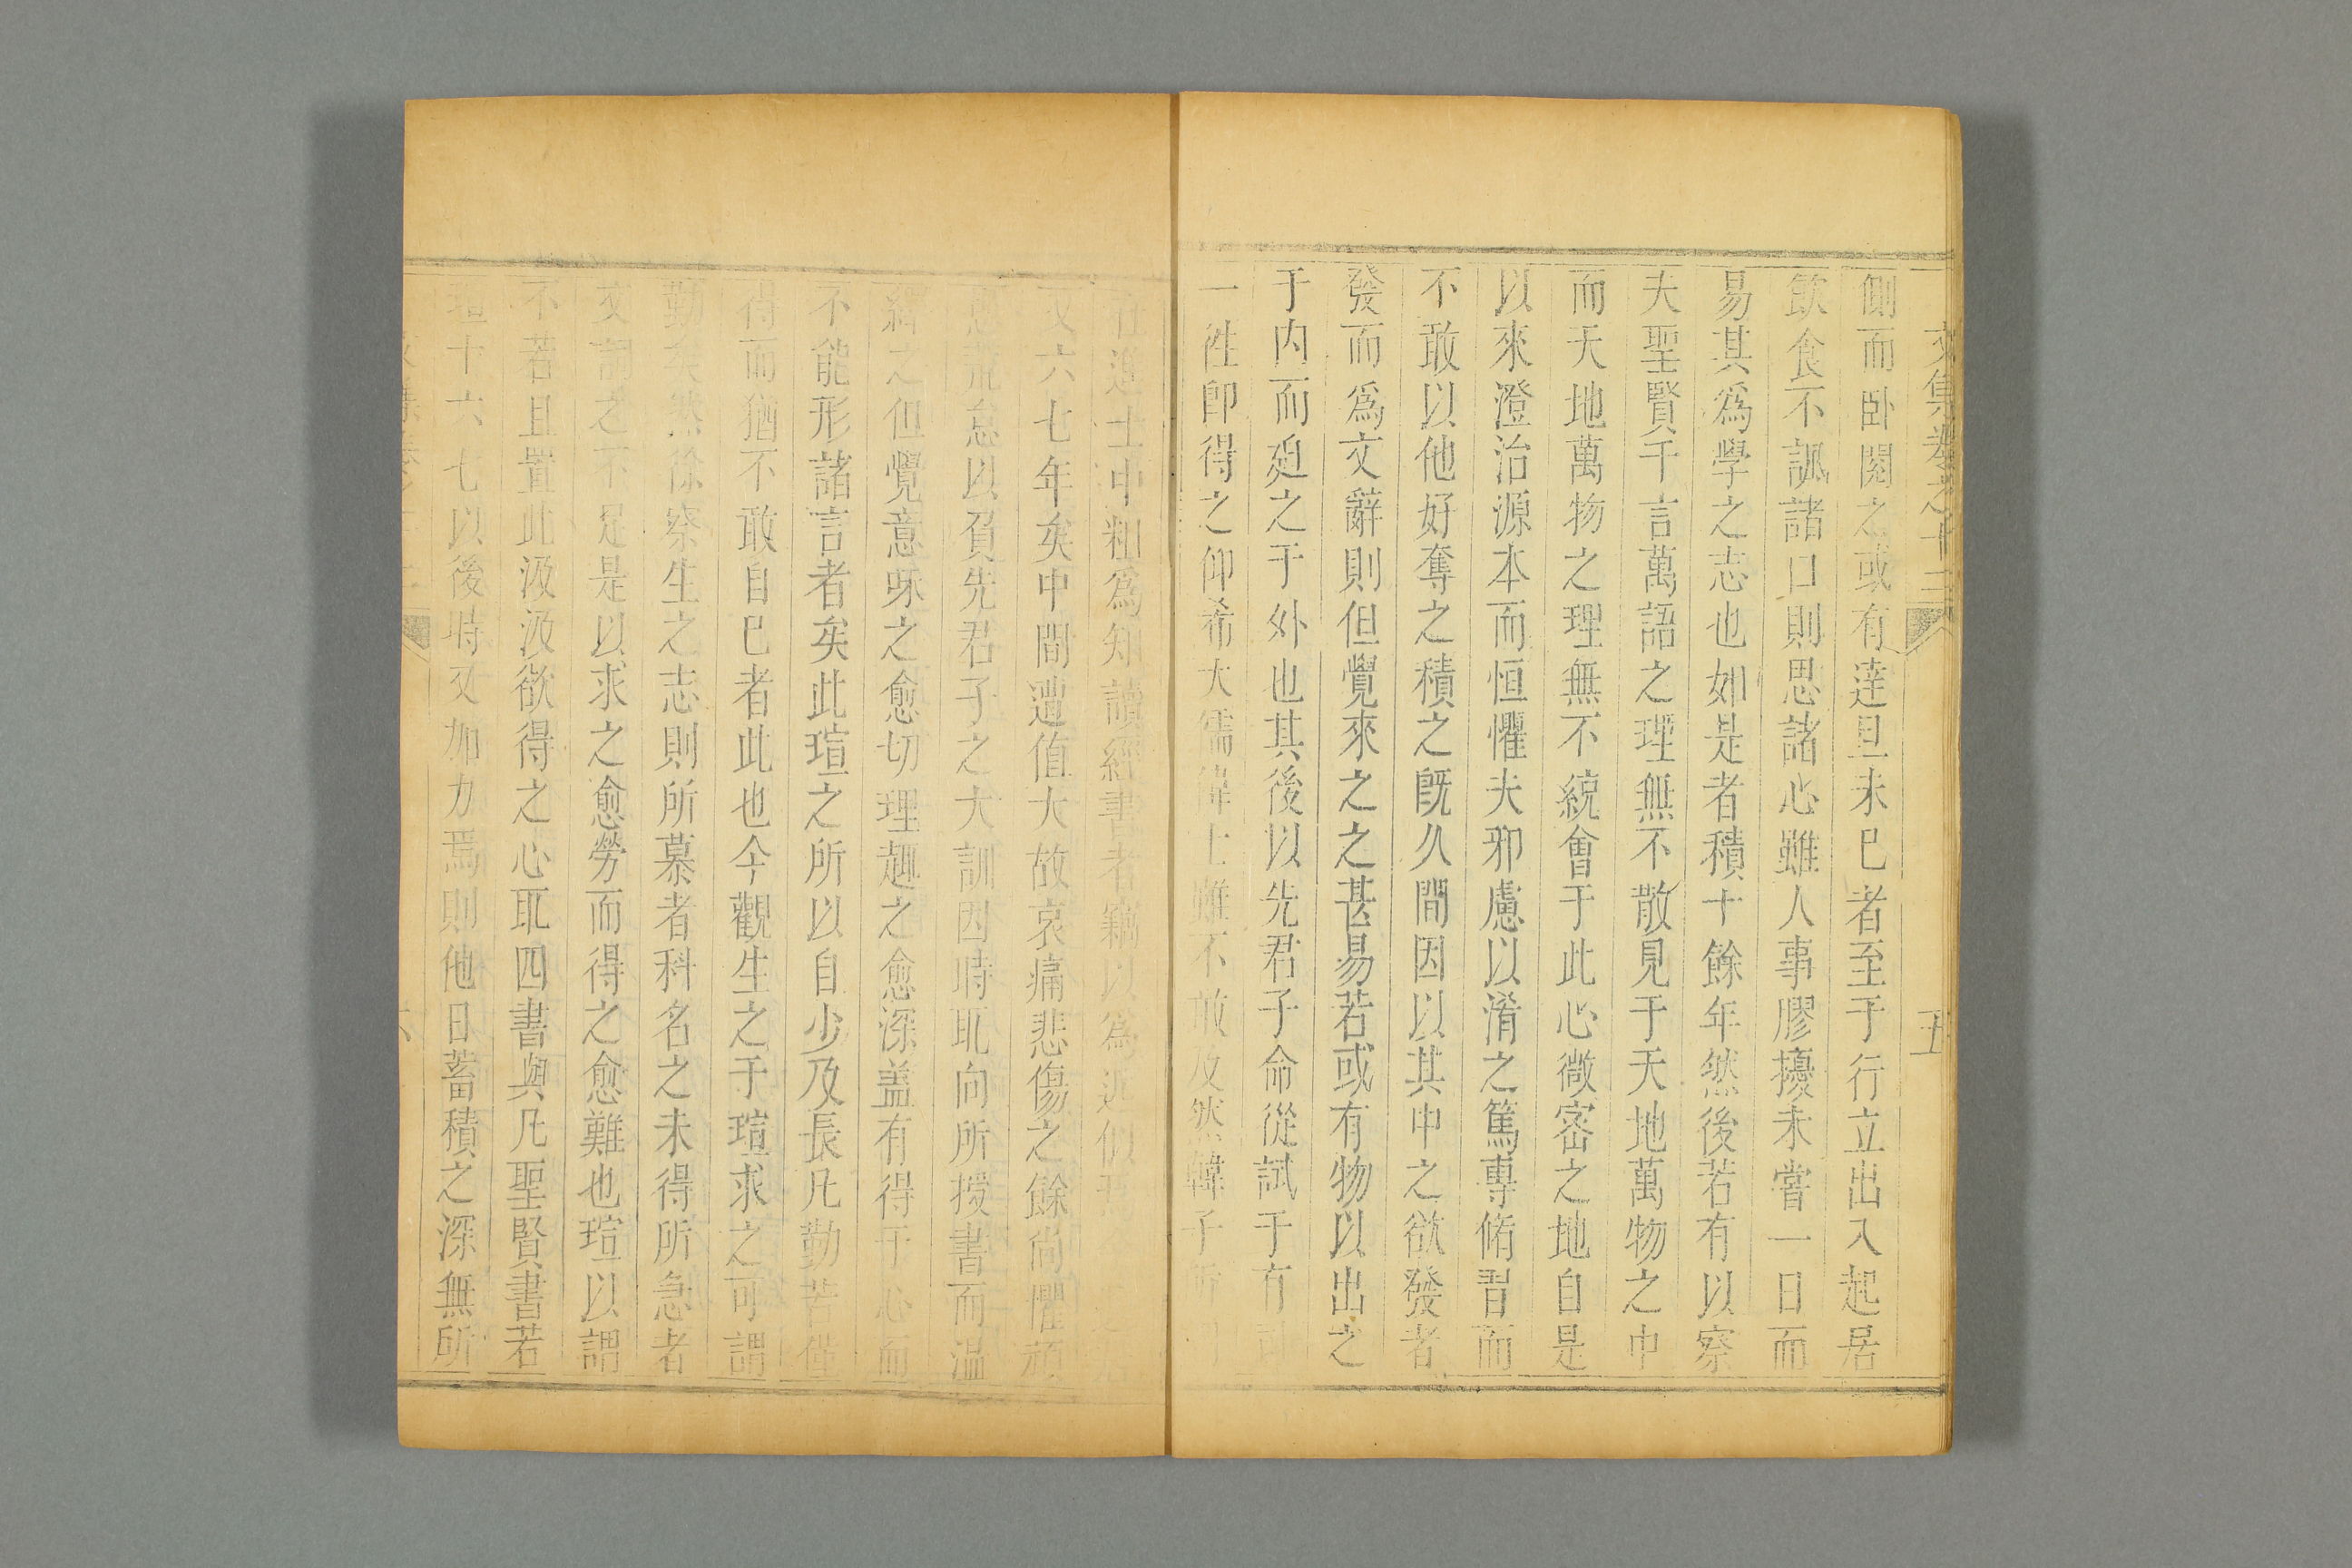 文集卷之十三 五
側而卧閱之或有達旦未已者至于行立出入起居
飲食不諷諸口則思諸心雖人事膠擾未嘗一日而
易其爲學之志也如是者積十餘年然後若有以察
夫聖賢千言萬語之理無不散見于天地萬物之中
而天地萬物之理無不統會于此心微密之地自是
以來澄治源本而恒懼夫邪慮以淆之篤專脩習而
不敢以他好奪之積之旣久間因以其中之欲發者
發而爲文辭則但覺來之之甚易若或有物以出之
于内而廹之于外也其後以先君子命從試于有司
一徃卽得之仰希大儒偉士雖不敢及然韓子所
進士中粗爲知讀經書者竊以為近似
又六七年矣中間遭值大故哀痛悲傷之餘尚懼頑
荒怠以負先君子之大訓因時取向所授書而温
之但覺意味之愈切理趣之愈深盖有得于心而
不能形諸言者矣此瑄之所以自少及長凡勤苦僅
得而猶不敢自已者此也今觀生之于瑄求之可謂
勤矣然徐察生之志則所慕者科名之未得所急者
文詞之不足是以求之愈勞而得之愈難也瑄以謂
不若且置此汲汲欲得之心取四書與凡聖賢書若
瑄十六七以後時又加力焉則他日蓄積之深無所